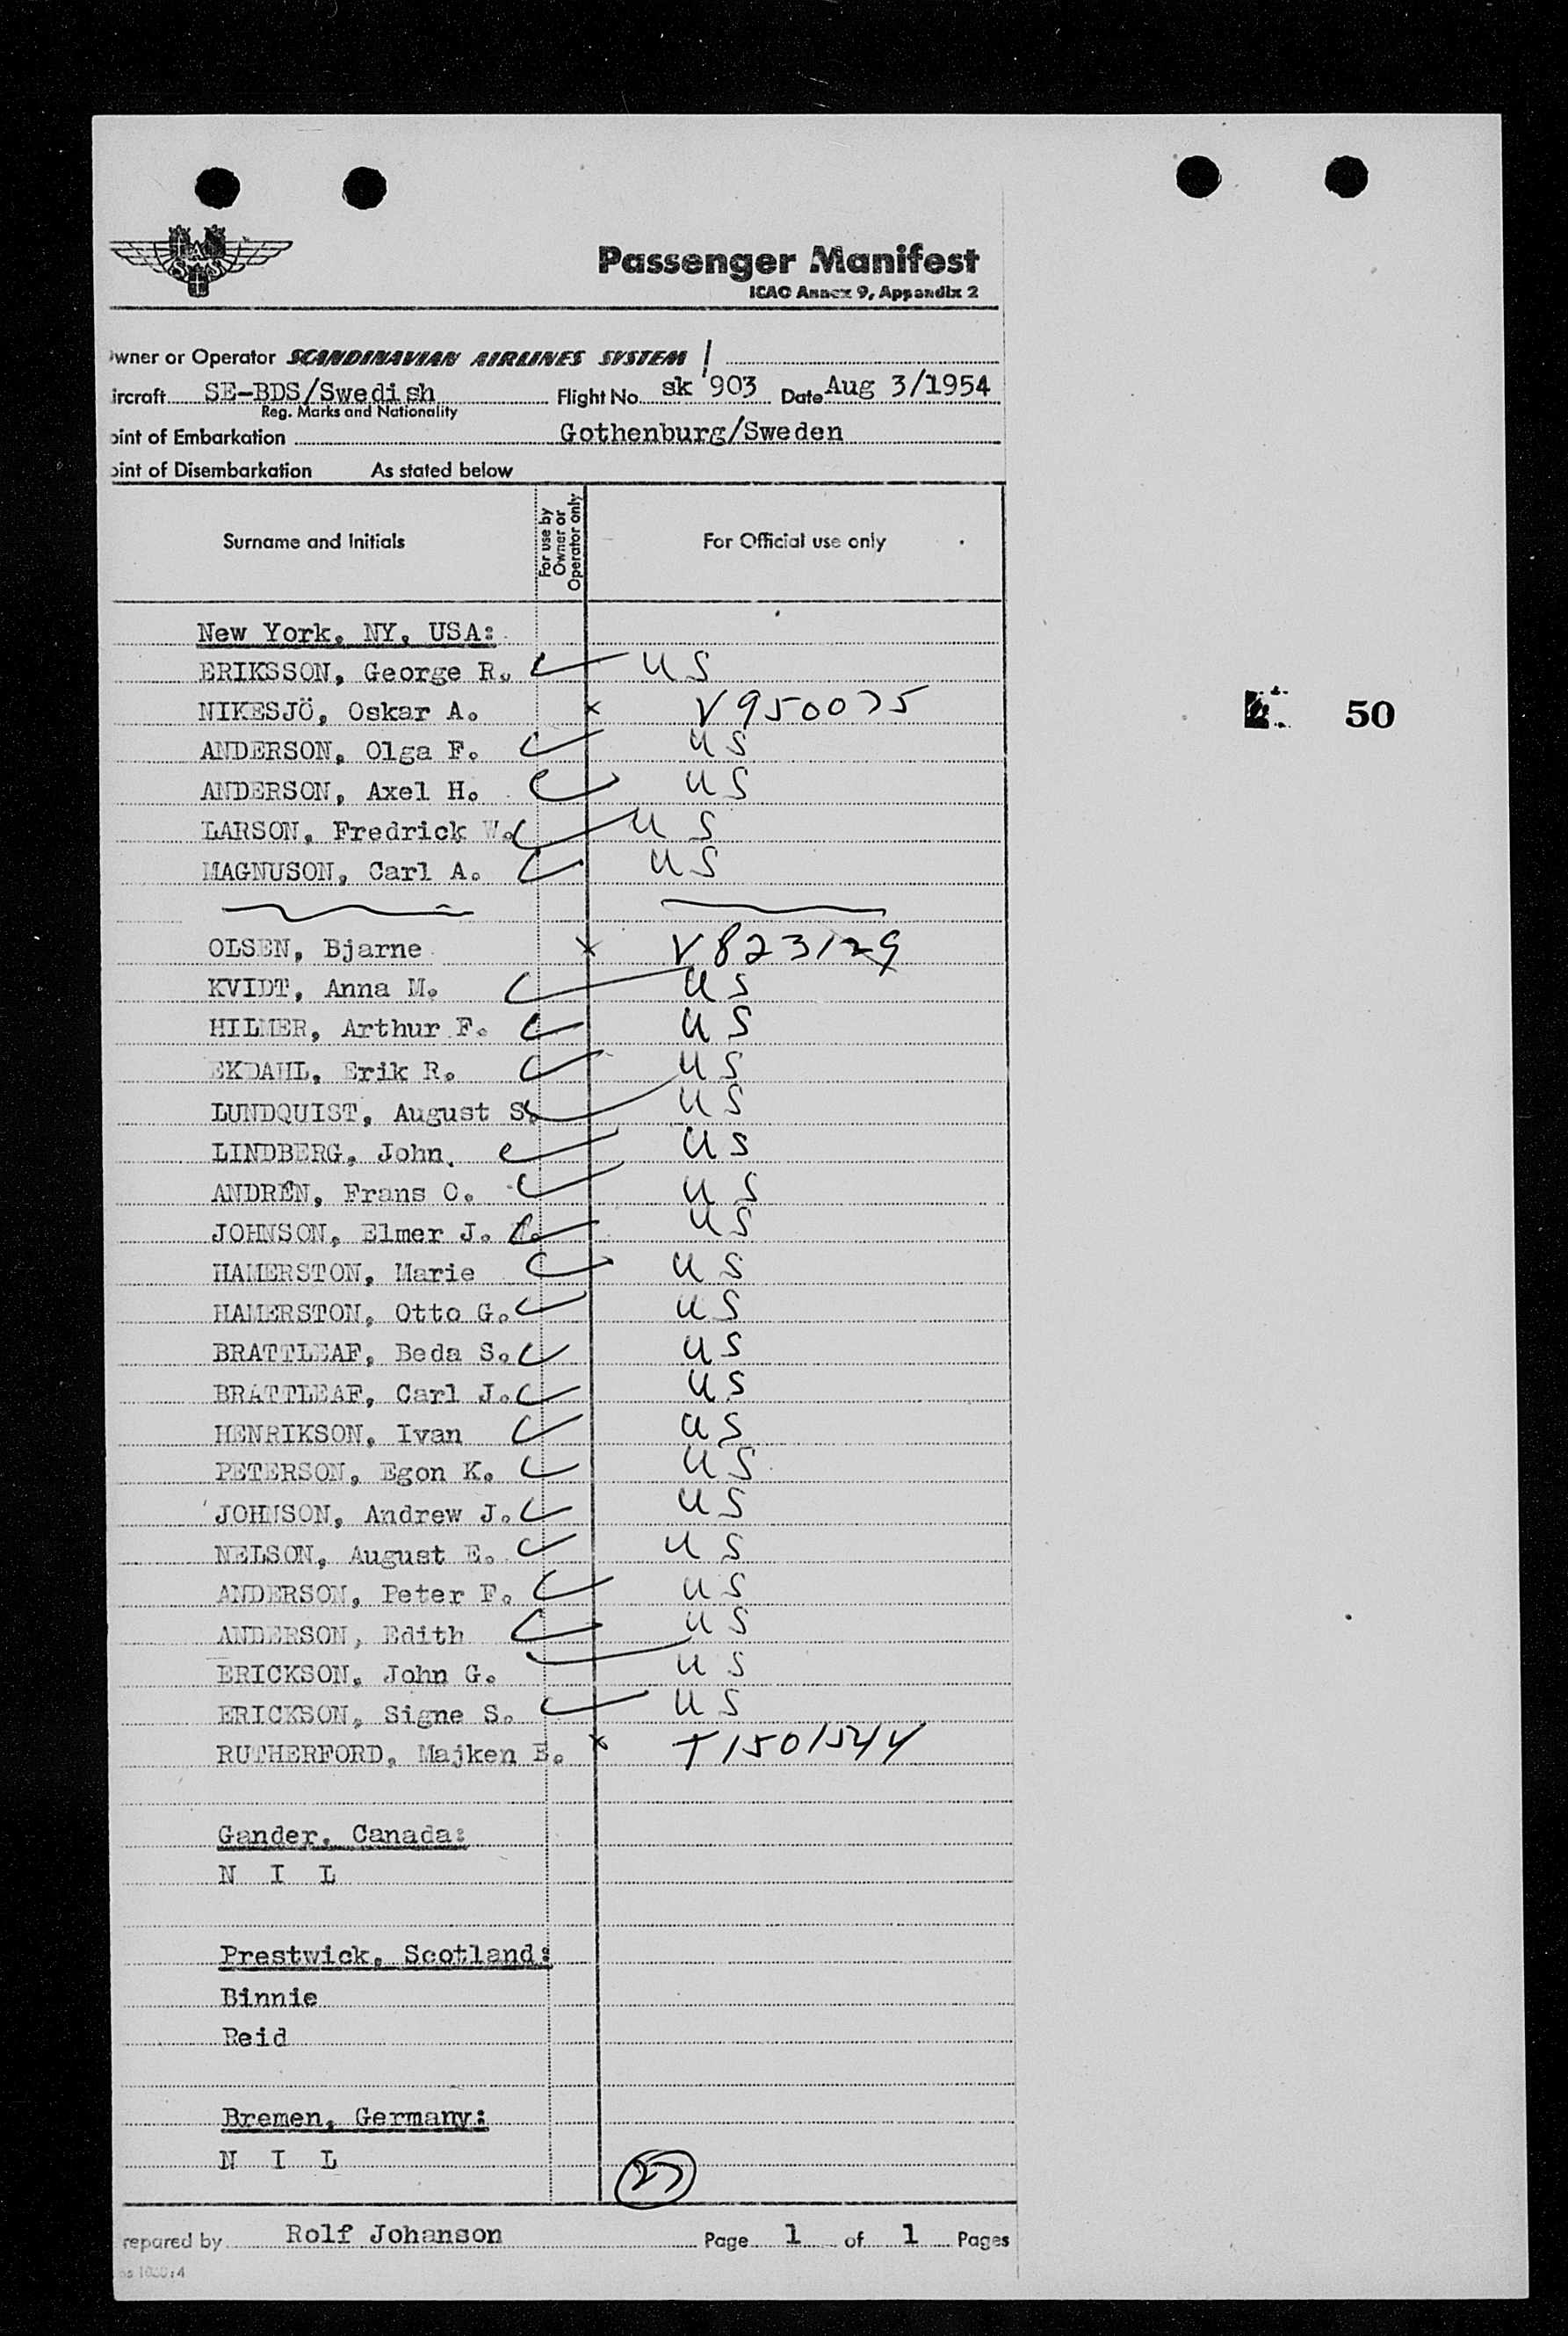 SAS
Passenger Manifest
ICAO Annex 9, Appendix 2
wner or Operator SCANDINAVIAN AIRLINES SYSTEM /
ircraft SE-BDS/Swedish Flight No. sk 903 Date Aug 3/1954
Reg. Marks and Nationality
oint of Embarkation Gothenburg/Sweden
oint of Disembarkation As stated below
Surname and Initials For use by Owner or Operator only For Official use only
New York, NY, USA:
ERIKSSON, George R. US
NIKESJÖ, Oskar A. x V950075
50
ANDERSON, Olga F. US
ANDERSON, Axel H. US
LARSON, Fredrick W. US
MAGNUSON, Carl A. US
OLSEN, Bjarne x V823129
KVIDT, Anna M. US
HILMER, Arthur F. US
EKDAHL, Erik R. US
LUNDQUIST, August S. US
LINDBERG, John. US
ANDRÉN, Frans O. US
JOHNSON, Elmer J. US
HAMERSTON, Marie US
HAMERSTON, Otto G. US
BRATTLEAF, Beda S. US
BRATTLEAF, Carl J. US
HENRIKSON, Ivan US
PETERSON, Egon K. US
JOHNSON, Andrew J. US
NELSON, August E. US
ANDERSON, Peter F. US
ANDERSON, Edith US
ERICKSON, John G. US
ERICKSON, Signe S. US
RUTHERFORD, Majken E. x T1501544
Gander, Canada:
N I L
Prestwick, Scotland:
Binnie
Reid
Bremen, Germany:
N I L
27
repared by Rolf Johanson Page 1 of 1 Pages